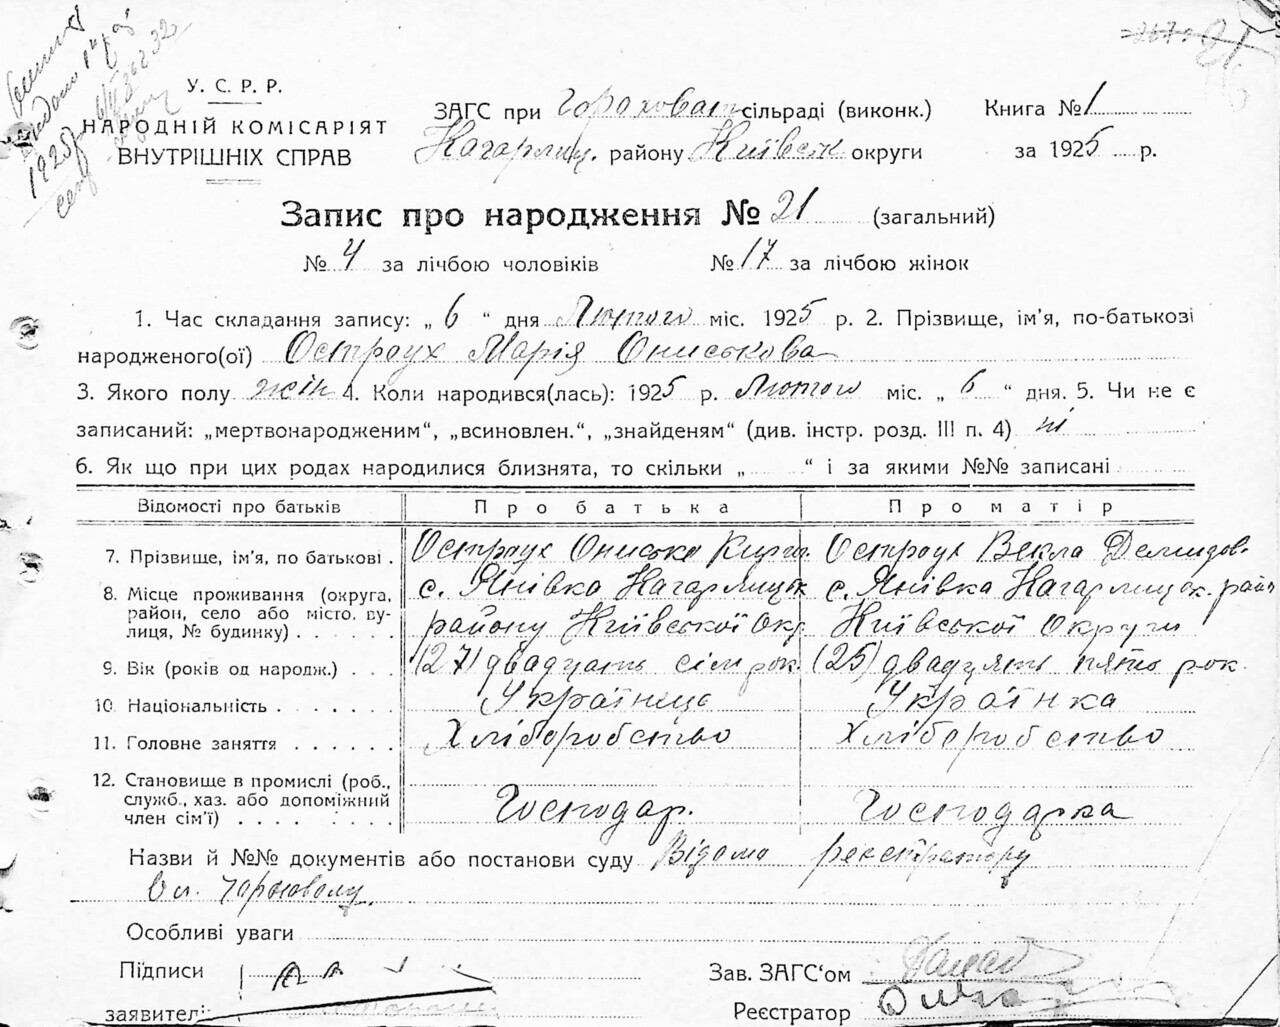 У. С. Р. Р.
НАРОДНІЙ КОМІСАРІЯТ
ВНУТРІШНІХ СПРАВ
1925
ЗАГС при Гороховат сільраді (виконк.) Книга № 1
Кагарлиц. району Київськ округи за 1925 р.
Запис про народження № 21 (загальний)
№ 4 за лічбою чоловіків № 17 за лічбою жінок
1. Час складання запису: „ 6 “ дня Лютого міс. 1925 р. 2. Прізвище, ім'я, по-батькові
народженого(ої) Остроух Марія Ониськова
3. Якого полу жін 4. Коли народився(лась): 1925 р. Лютого міс. „ 6 “ дня. 5. Чи не є
записаний: „мертвонародженим“, „всиновлен.“, „знайденям“ (див. інстр. розд. III п. 4) ні
6. Як що при цих родах народилися близнята, то скільки „ “ і за якими №№ записані
Відомості про батьків Про батька Про матір
7. Прізвище, ім'я, по батькові . Остроух Онисько Остроух Векла Демидов.
8. Місце проживання (округа, район, село або місто, вулиця, № будинку) . . . . . . с. Янівка Кагарлицьк району Київської Окр с. Янівка Кагарлицьк. район Київської Округи
9. Вік (років од народж.) . . . (27) двадцять сім рок. (25) двадцять пять рок.
10. Національність . . . . . . . Українець Українка
11. Головне заняття . . . . . . Хліборобство Хліборобство
12. Становище в промислі (роб., служб., хаз. або допоміжний член сім'ї) . . . . . . . . Господар. Господарка
Назви й №№ документів або постанови суду Відома реєстратору
Особливі уваги
Підписи Зав. ЗАГС‘ом
заявител: Реєстратор